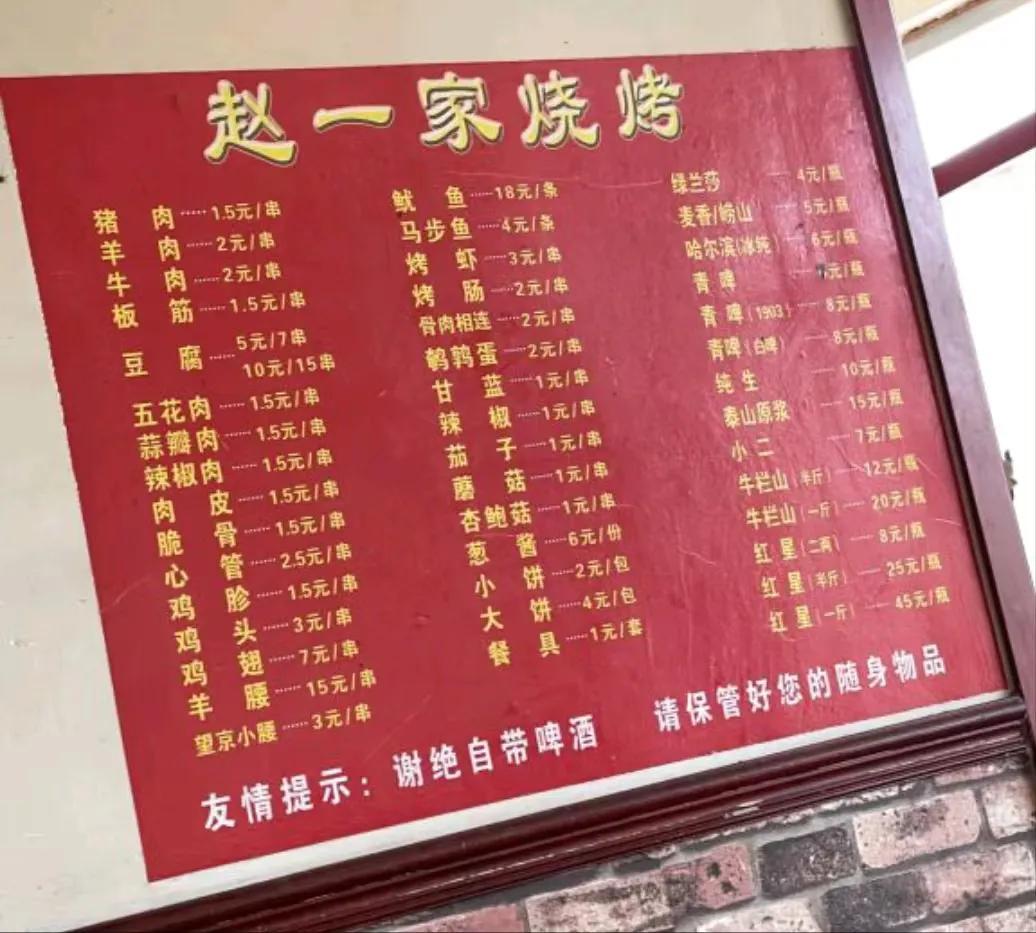 赵一家烧烤
猪肉······1.5元/串
羊肉······2元/串
牛肉······2元/串
板筋······1.5元/串
豆腐······5元/7串
10元/15串
五花肉······1.5元/串
蒜瓣肉······1.5元/串
辣椒肉······1.5元/串
肉皮······1.5元/串
脆骨······1.5元/串
心管······2.5元/串
鸡胗······1.5元/串
鸡头······3元/串
鸡翅······7元/串
羊腰······15元/串
望京小腰······3元/串
鱿鱼······18元/条
马步鱼······4元/条
烤虾······3元/串
烤肠······2元/串
骨肉相连······2元/串
鹌鹑蛋······2元/串
甘蓝······1元/串
辣椒······1元/串
茄子······1元/串
蘑菇······1元/串
杏鲍菇······1元/串
葱酱······6元/份
小饼······2元/包
大饼······4元/包
餐具······1元/套
绿兰莎······4元/瓶
麦香/崂山······5元/瓶
哈尔滨(冰纯)······6元/瓶
青啤······元/瓶
青啤(1903)······8元/瓶
青啤(白啤)······8元/瓶
纯生······10元/瓶
泰山原浆······15元/瓶
小二······7元/瓶
牛栏山(半斤)······12元/瓶
牛栏山(一斤)······20元/瓶
红星(二两)······8元/瓶
红星(半斤)······25元/瓶
红星(一斤)······45元/瓶
友情提示：谢绝自带啤酒 请保管好您的随身物品